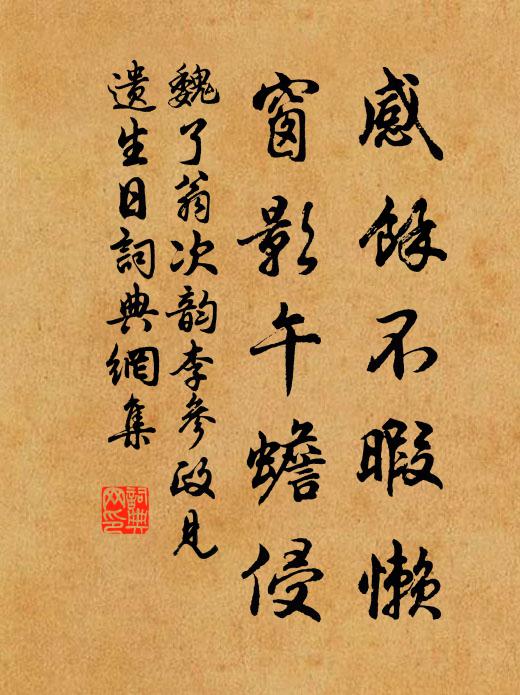 感餘不暇懶
窗影午蟾侵
魏了翁次韵李參政見
遗生日詞典網集
詞典网印